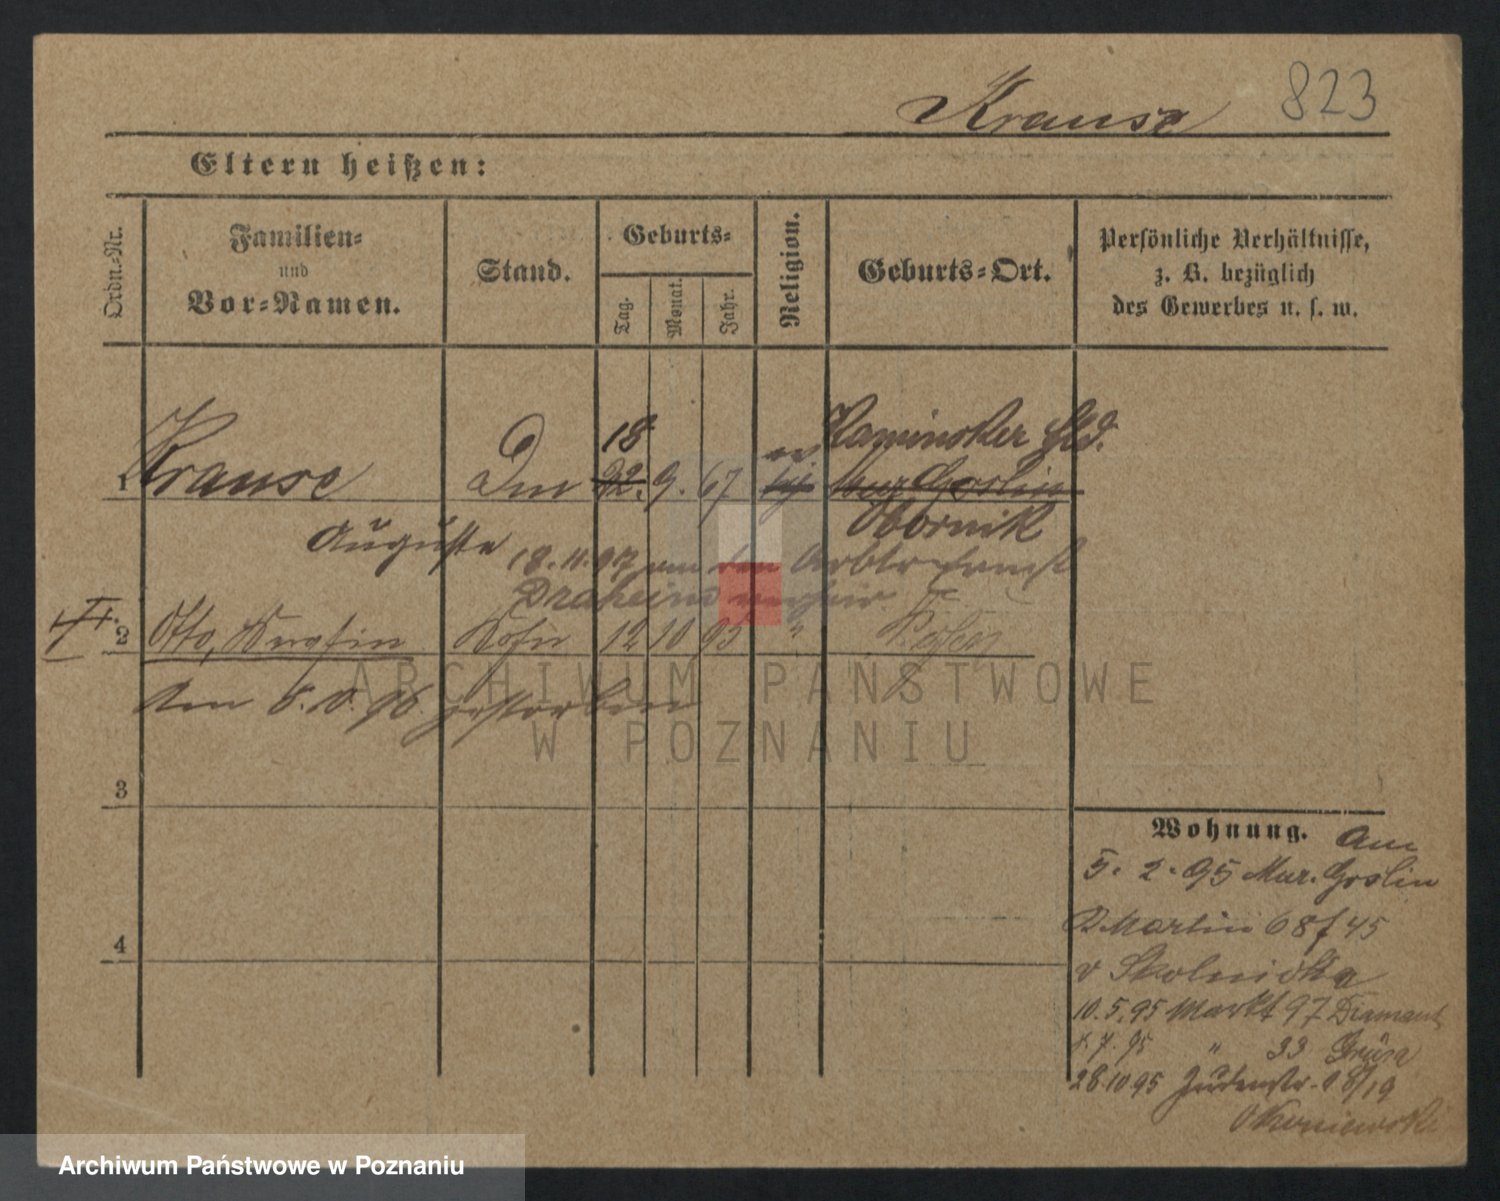 Krause 823
Eltern heißen:
Ordn.-Nr.
Familien-
und
Vor-Namen.
Stand.
Geburts-
Tag.
Monat.
Jahr.
Religion.
Geburts-Ort.
Persönliche Verhältnisse,
z. B. bezüglich
des Gewerbes u. s. w.
18 Kaminsker Hld.
1 Krause 22. 9. 67 Mur Goslin
Obornik
Auguste
18. 11. 97 an den Arbtr
Draheim
II. 2 Otto, Sohn 12 10 95 " Posen
Am gestorben
ARCHIWUM PAŃSTWOWE
W POZNANIU
3
4
Wohnung. Am
5. 2. 95 Mur. Goslin
Martin 68 45
v Skolnicka
10. 5. 95 Markt 97 Diamant
7. 95 " 33
28. 10. 95 Judenstr. 18/19
Archiwum Państwowe w Poznaniu